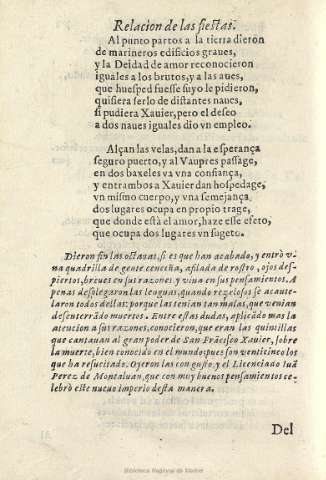 Relacion de las fiestas.
Al punto partos a la tierra dieron
de marineros edificios graues,
y la Deidad de amor reconocieron
iguales a los brutos, y a las aues,
que huesped fuesse suyo le pidieron,
quisiera serlo de distantes naues,
si pudiera Xauier, pero el deseo
a dos naues iguales dio vn empleo.
Alçan las velas, dan a la esperança
seguro puerto, y al Vaupres passage,
en dos baxeles va vna confiança,
y entrambos a Xauier dan hospedage,
vn mismo cuerpo, y vna semejança
dos lugares ocupa en propio trage,
que donde està el amor, haze este efeto,
que ocupa dos lugares vn sugeto.
Dieron fin las octauas, si es que han acabado, y entrò v-
na quadrilla de gente cenceña, afilada de rostro, ojos des-
piertos, breues en sus razones y viua en sus pensamientos. A
penas desplegaron las lenguas, quando rezelosos se acaute-
laron todos dellas: porque las tenian tan malas, que venian
desenterrãdo muertos. Entre estas dudas, aplicãdo mas la
atencion a sus razones, conocieron, que eran las quintillas
que cantauan al gran poder de San Frãcisco Xauier, sobre
la muerte, bien conocido en el mundo pues son veinticinco los
que ha resucitado. Oyeron las con gusto, y el Licenciado Iuã
Perez de Montaluan, que con muy buenos pensamientos ce-
lebrò este nueuo imperio desta manera,
Del
Biblioteca Regional de Madrid